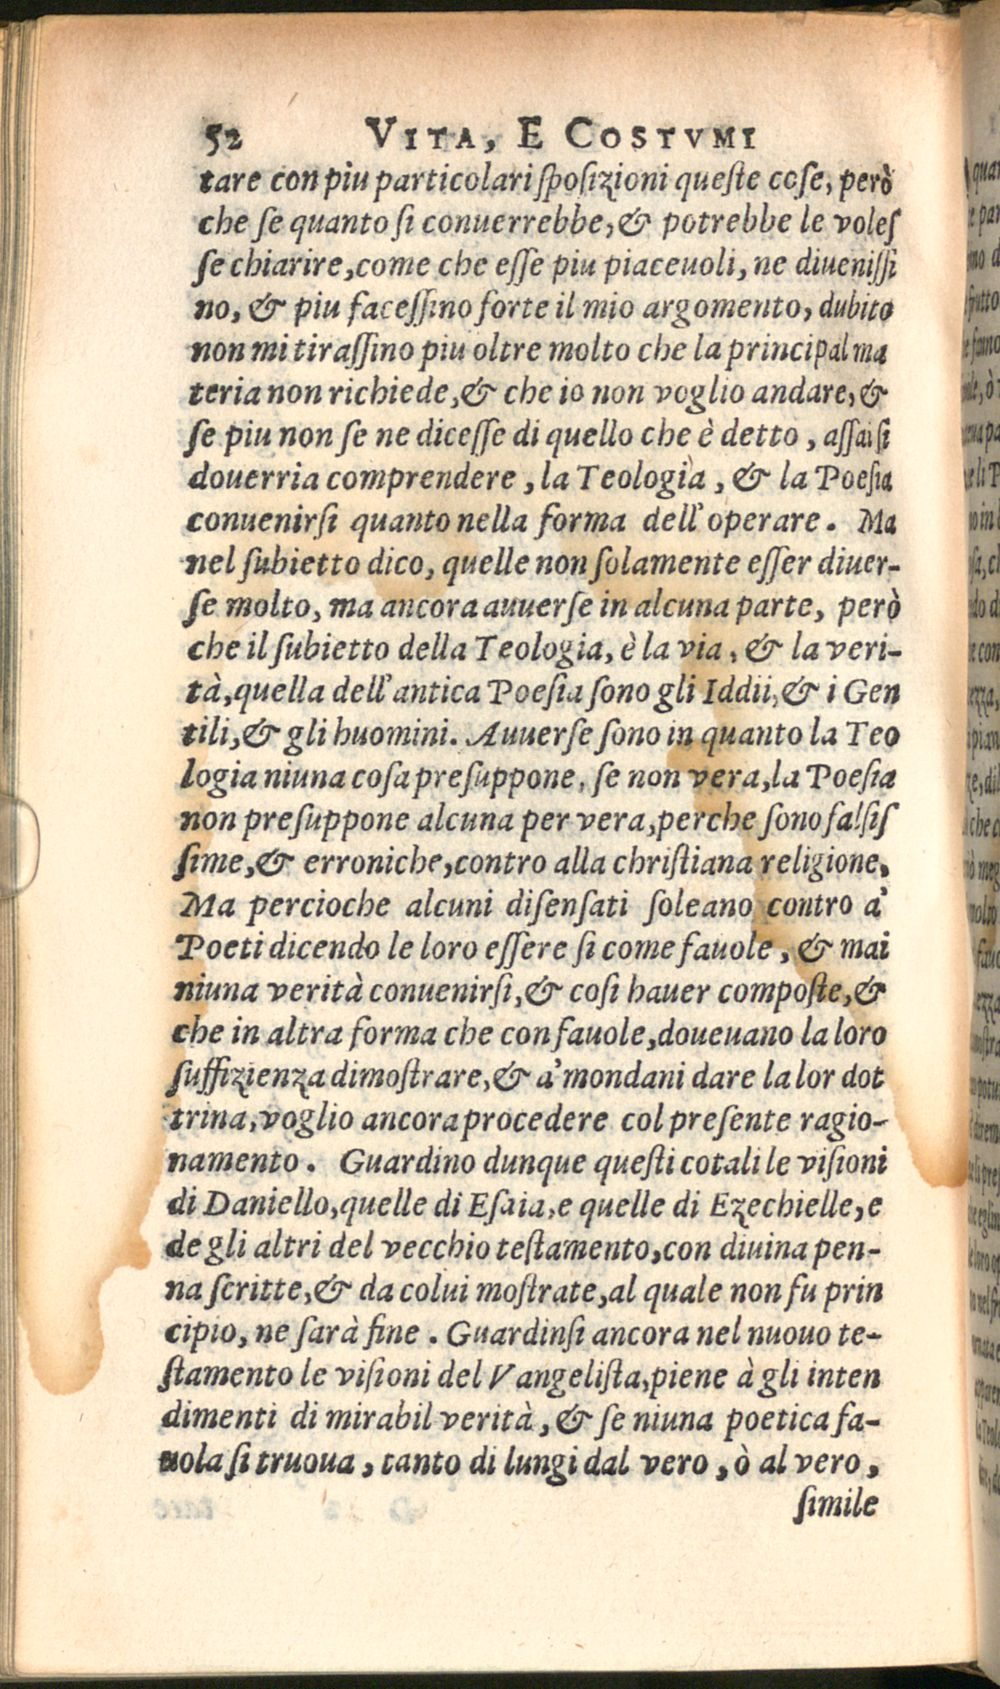 52 VITA, E COSTVMI
tare con piu particolari ſpoſizioni queſte coſe, però
che ſe quanto ſi conuerrebbe,& potrebbe le voleſ
ſe chiarire,come che eſſe piu piaceuoli, ne diueniſſi
no, & piu faceſſino forte il mio argomento, dubito
non mi tiraſſino piu oltre molto che la principal ma
teria non richiede,& che io non voglio andare,&
ſe piu non ſe ne diceſſe di quello che è detto, aſſai ſi
douerria comprendere, la Teologia, & la Poeſia
conuenirſi quanto nella forma dell'operare. Ma
nel ſubietto dico, quelle non ſolamente eſſer diuer-
ſe molto, ma ancora auuerſe in alcuna parte, però
che il ſubietto della Teologia, è la via, & la veri-
tà,quella dell'antica Poeſia ſono gli Iddii,& i Gen
tili,& gli huomini. Auuerſe ſono in quanto la Teo
logia niuna coſa preſuppone, ſe non vera,la Poeſia
non preſuppone alcuna per vera,perche ſono falſiſ
ſime,& erroniche,contro alla chriſtiana religione,
Ma percioche alcuni diſenſati ſoleano contro a'
Poeti dicendo le loro eſſere ſi come fauole, & mai
niuna verità conuenirſi,& coſi hauer compoſte,&
che in altra forma che con fauole,doueuano la loro
ſuffizienza dimoſtrare,& a' mondani dare la lor dot
trina,voglio ancora procedere col preſente ragio-
namento. Guardino dunque queſti cotali le viſioni
di Daniello,quelle di Eſaia,e quelle di Ezechielle,e
de gli altri del vecchio teſtamento,con diuina pen-
na ſcritte,& da colui moſtrate,al quale non fu prin
cipio, ne ſarà fine. Guardinſi ancora nel nuouo te-
ſtamento le viſioni del Vangeliſta,piene à gli inten
dimenti di mirabil verità, & ſe niuna poetica fa-
uola ſi truoua, tanto di lungi dal vero, ò al vero,
ſimile